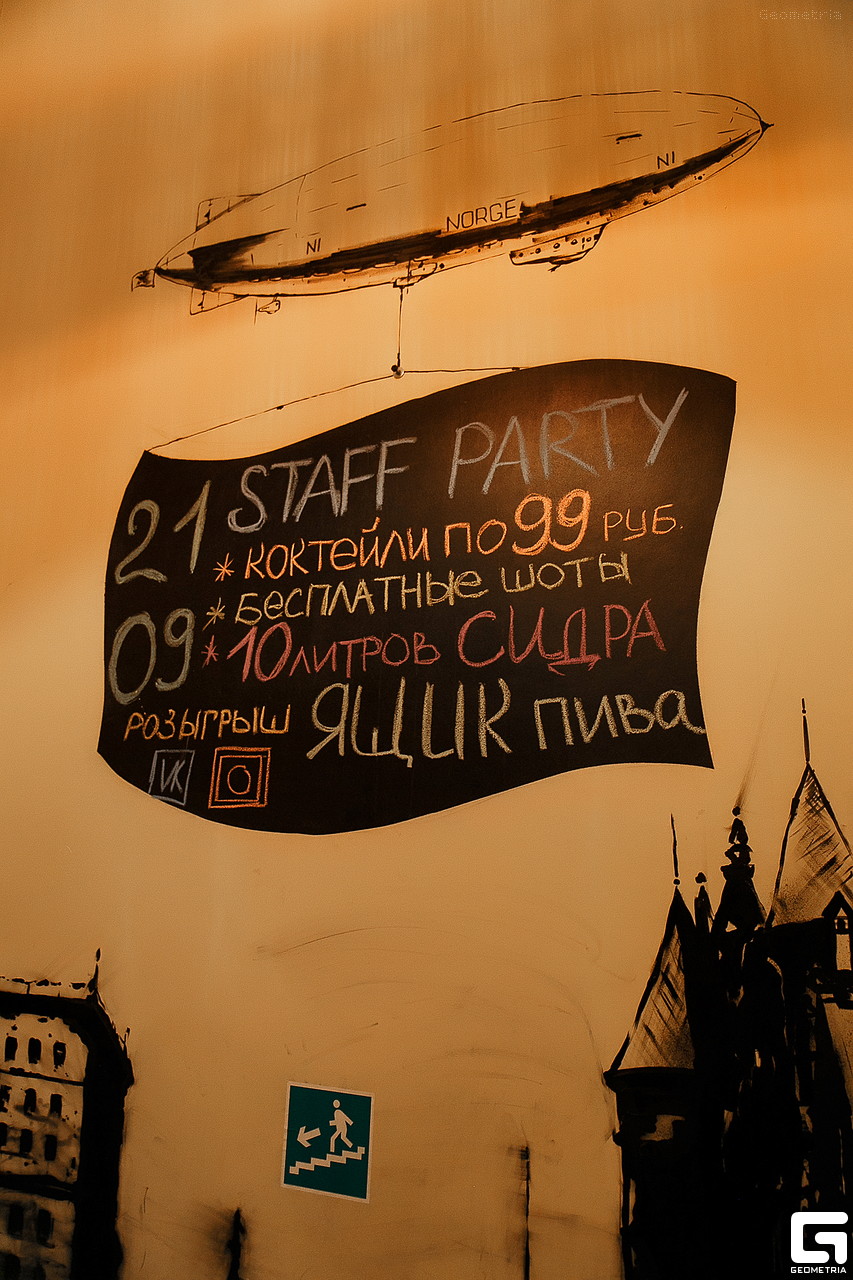 Geometria
NI
NORGE
NI
21 STAFF PARTY
* КОКТЕЙЛИ ПО 99 РУБ.
* БЕСПЛАТНЫЕ ШОТЫ
09 * 10 ЛИТРОВ СИДРА
РОЗЫГРЫШ ЯЩИК ПИВА
VK
GEOMETRIA